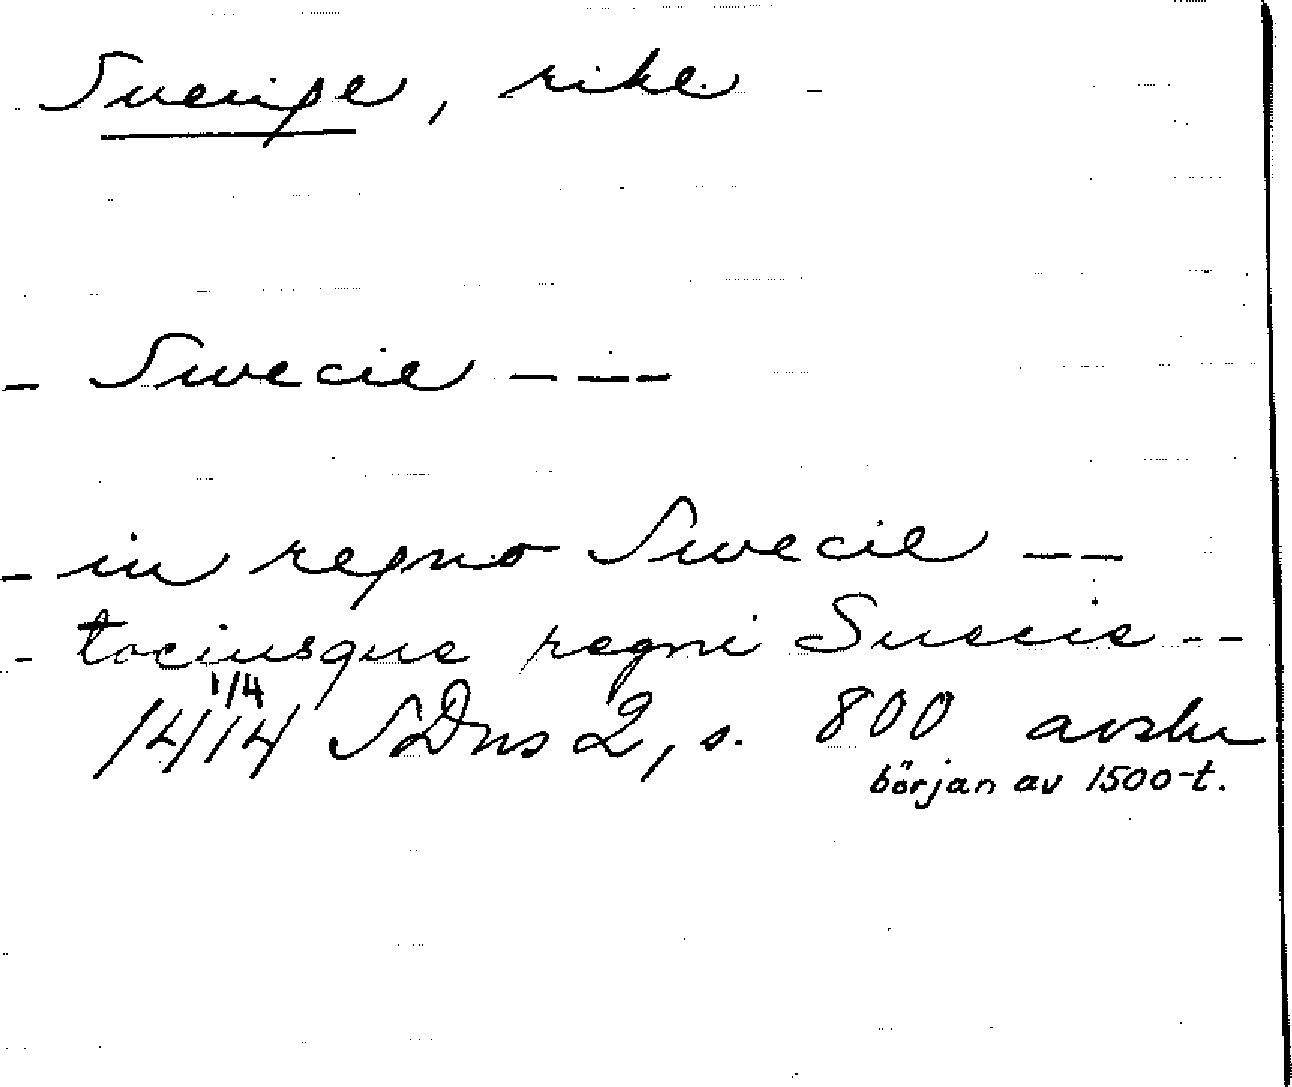 Sverige, rike
- Swecie - - -
- in regno Swecie - -
- tociusque regni Suecie - -
1/4
1414 SDns 2, s. 800 avskr
början av 1500-t.